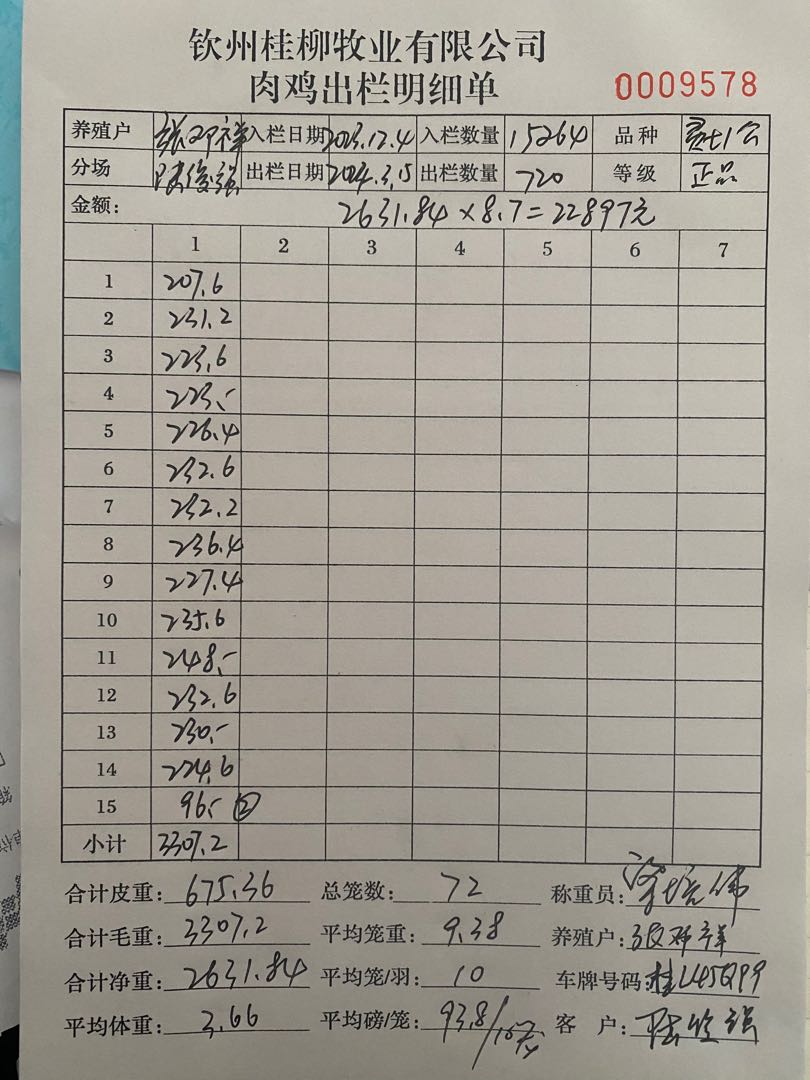 钦州桂柳牧业有限公司
肉鸡出栏明细单 0009578
养殖户 张邓祥 入栏日期 2023.12.4 入栏数量 15264 品种
分场 陆俊强 出栏日期 2024.3.15 出栏数量 720 等级 正品
金额: 2631.84×8.7=22897元
1 2 3 4 5 6 7
1 207.6
2 231.2
3 223.6
4 223.-
5 226.4
6 232.6
7 232.2
8 236.4
9 227.4
10 235.6
11 248.-
12 232.6
13 230.-
14 224.6
15 96.- ②
小计 3307.2
合计皮重: 675.36 总笼数: 72 称重员: 梁培伟
合计毛重: 3307.2 平均笼重: 9.38 养殖户: 张邓祥
合计净重: 2631.84 平均笼/羽: 10 车牌号码: 桂L45Q99
平均体重: 3.66 平均磅/笼: 93.8/ 客 户: 陆俊强